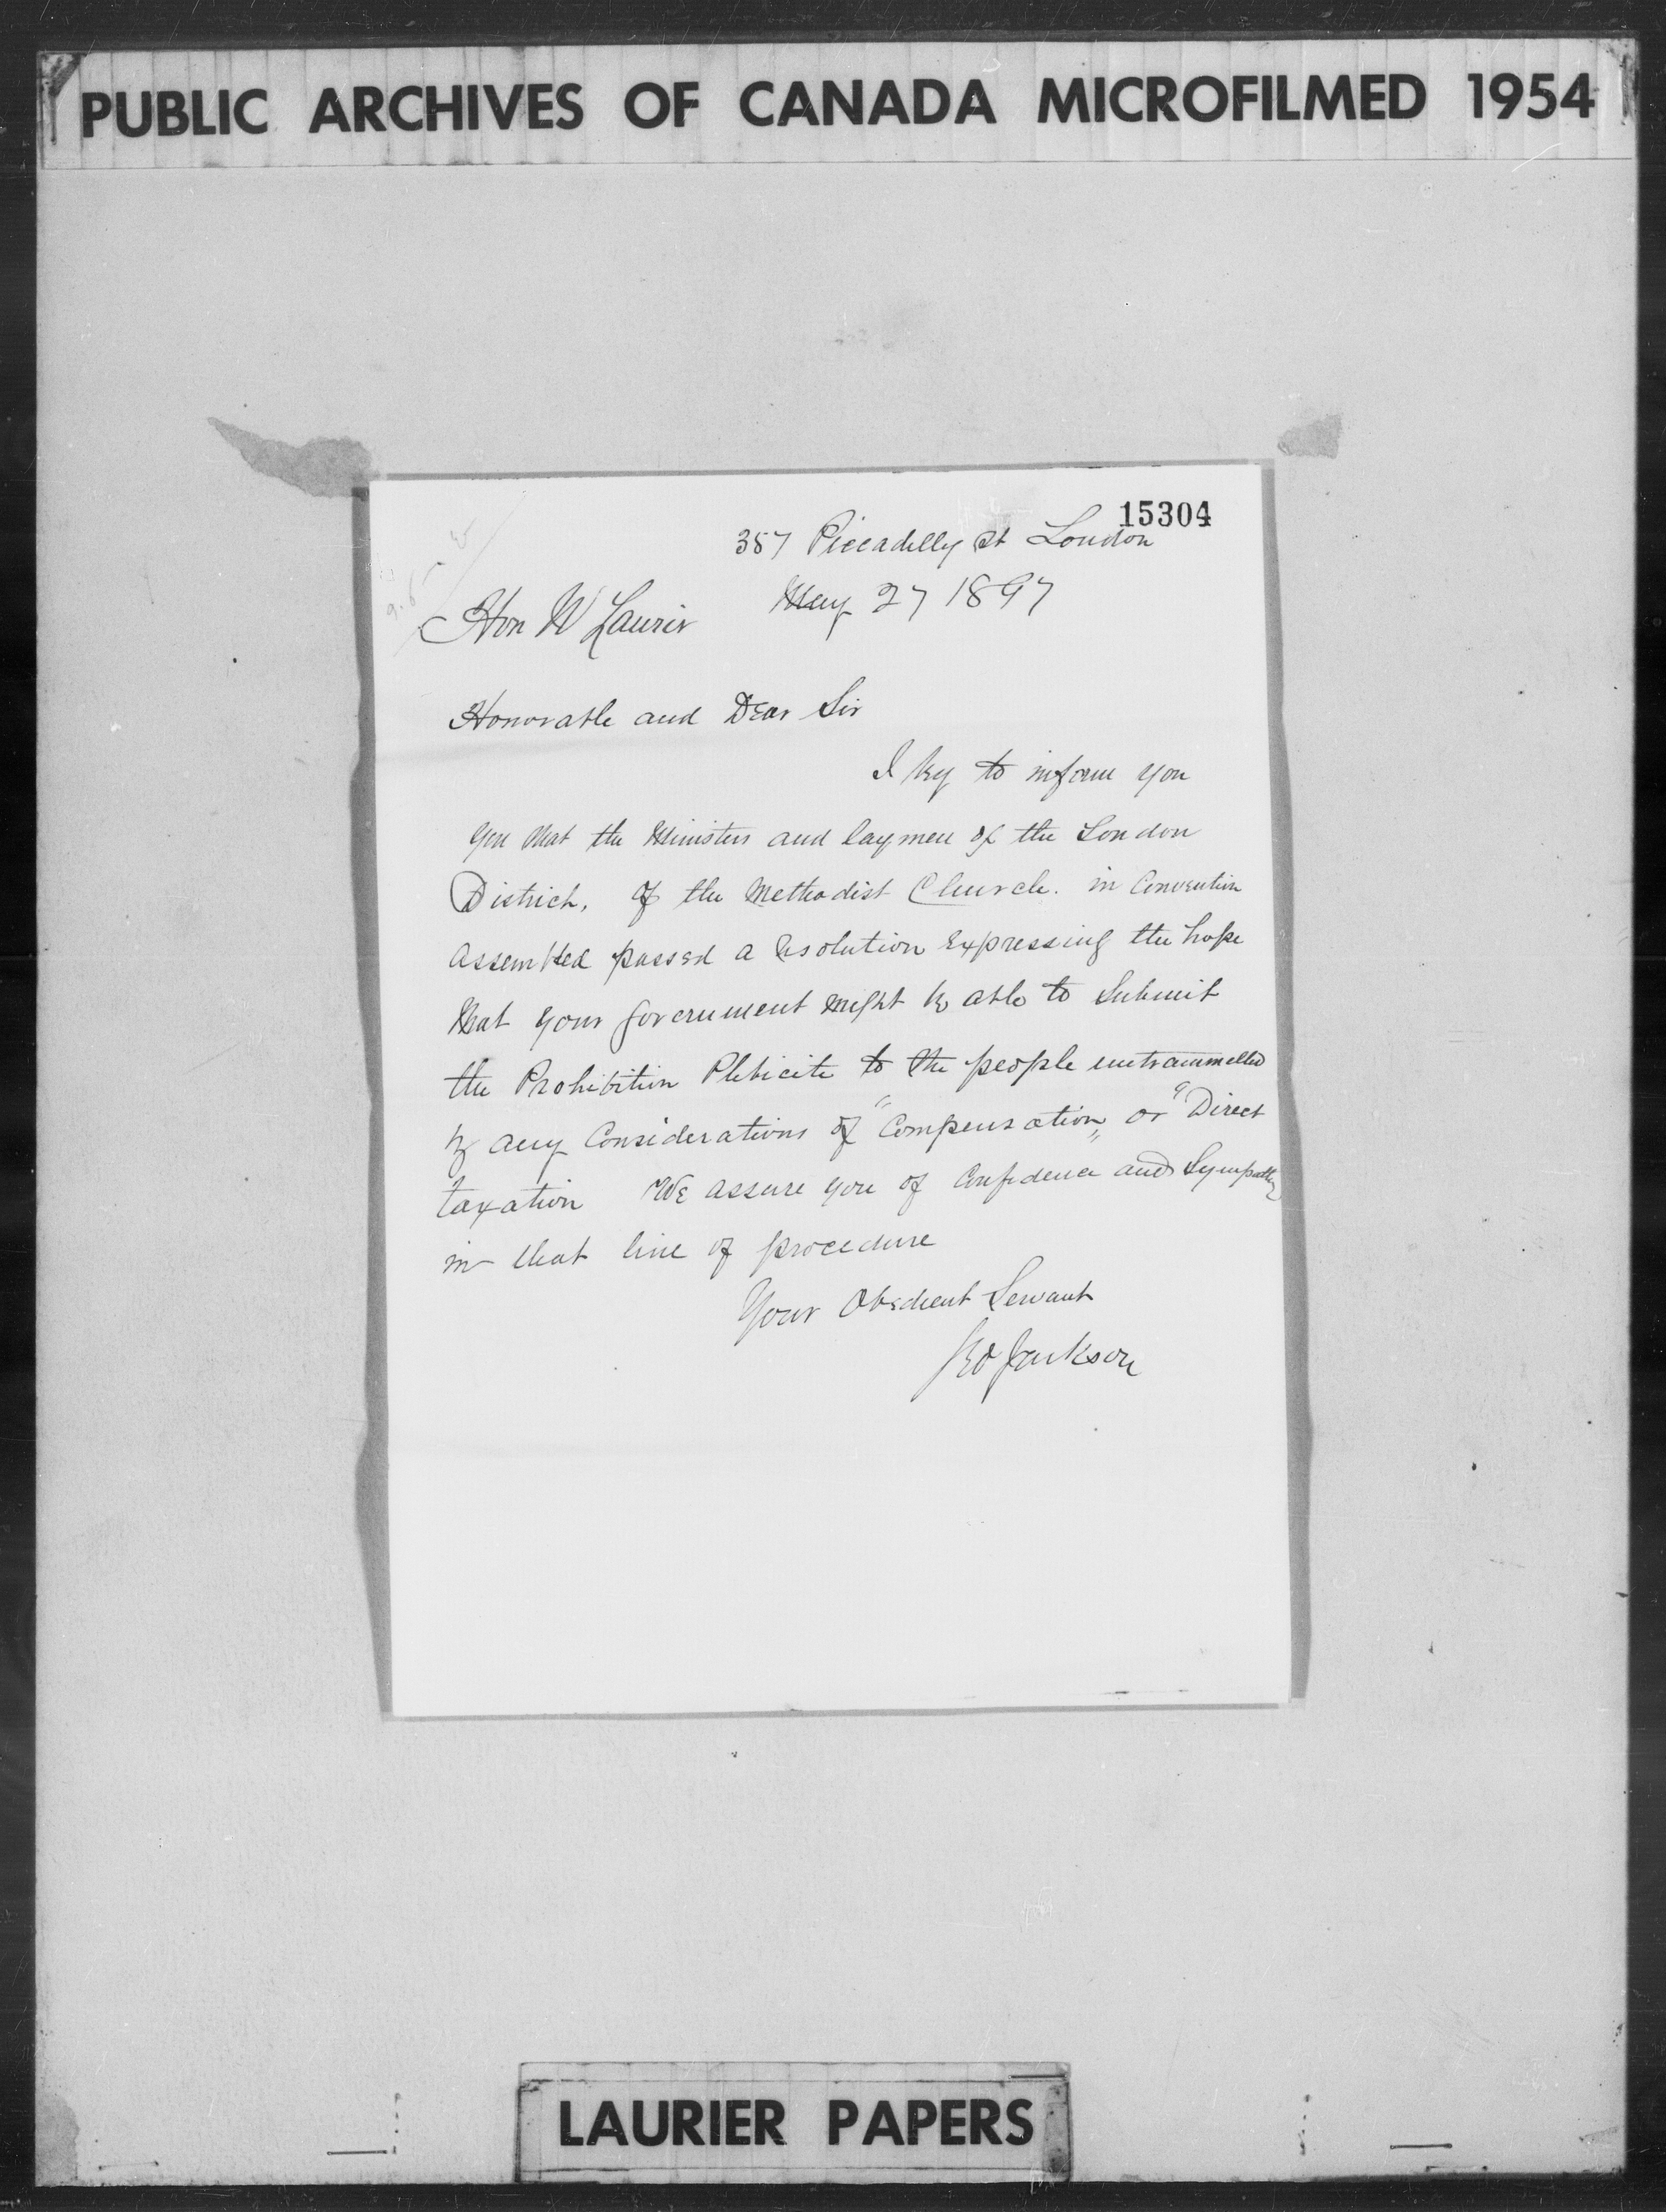 PUBLIC ARCHIVES OF CANADA MICROFILMED 1954
15304
357 Piccadilly St London
May 27 1897
Hon W Laurier
Honorable and Dear Sir
I beg to inform you
you that the Ministers and laymen of the London
District, of the Methodist Church. in Convention
assembled passed a resolution expressing the hope
that your government might be able to submit
the Prohibition Plebicite to the people untrammelled
by any Considerations of "Compensation" or "Direct
taxation We assure you of Confidence and Sympathy
in that line of procedure
Your Obedient Servant
Jackson
LAURIER PAPERS